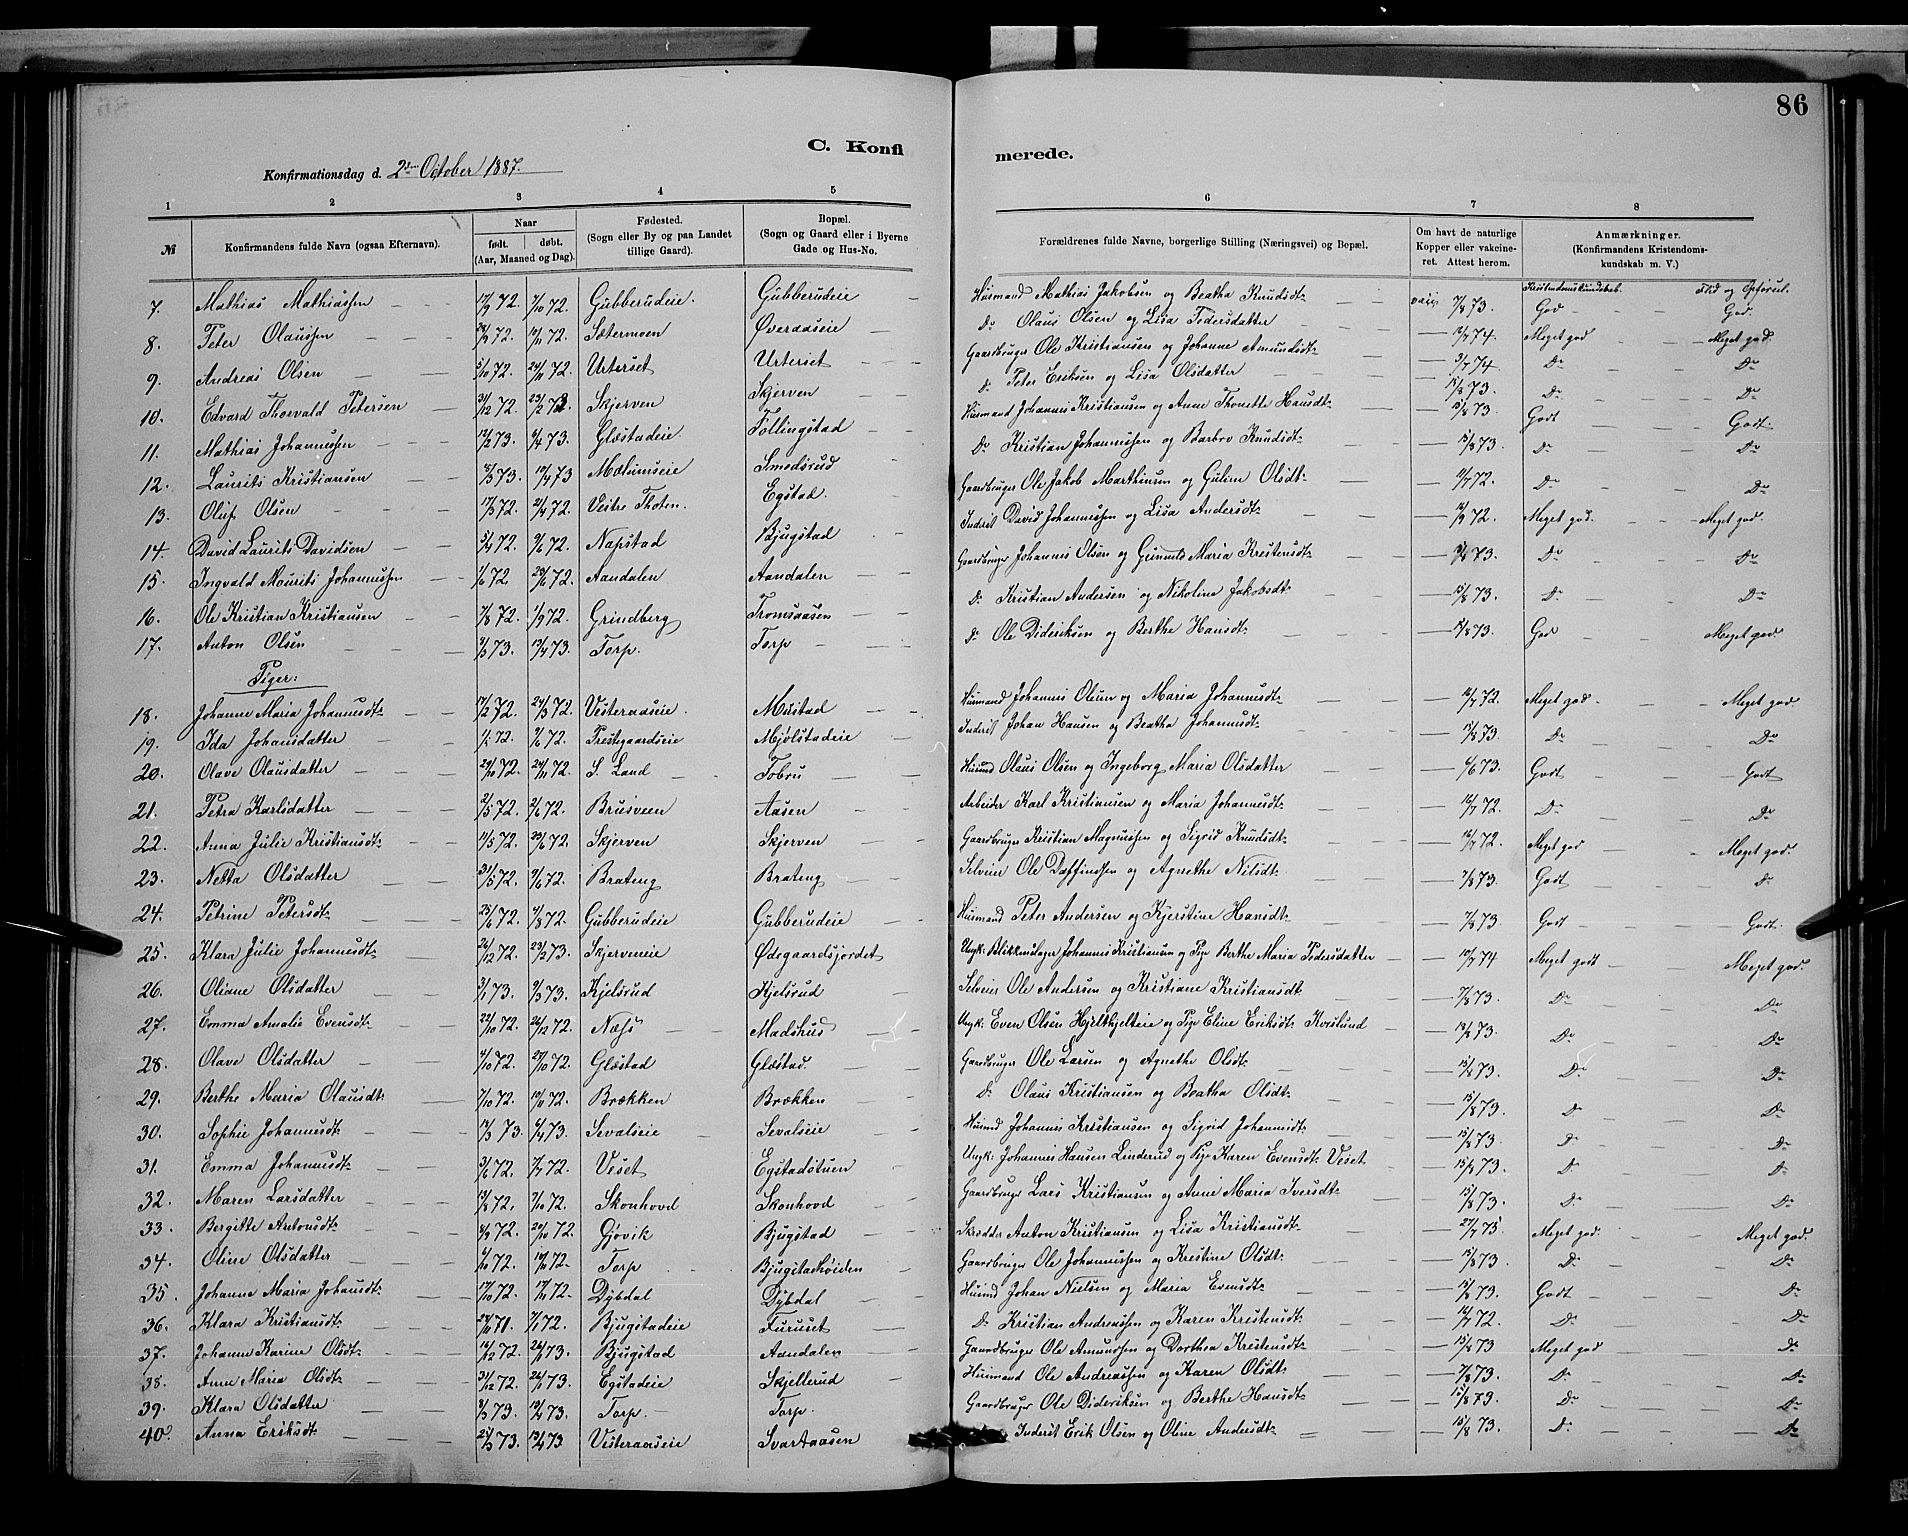 86
C. Konfi merede.
Konfirmationsdag d. 2den October 1887.
1 2 3 4 5 6 7 8
№ Konfirmandens fulde Navn (ogsaa Efternavn). Naar født. døbt. (Aar, Maaned og Dag). Fødested. (Sogn eller By og paa Landet tillige Gaard). Bopæl. (Sogn og Gaard eller i Byerne Gade og Hus-No. Forældrenes fulde Navne, borgerlige Stilling (Næringsvei) og Bopæl. Om havt de naturlige Kopper eller vakcineret. Attest herom. Anmærkninger. (Konfirmandens Kristendomskundskab m. V.)
Kristendomskundskab. Flid og Opførsel.
7. Mathias Mathiassen 72. 72. Gubberudeie. Gubberudeie Husmand Mathias Jakobsen og Beatha Knudsdt. vacc. 7/8 73. God God.
8. Peter Olaussen 72. 72. Sætermoen Øveraaseie Do Olaus Olsen og Lisa Pedersdatter 74. Meget god Meget god.
9. Andreas Olsen 5/10 72. 24/11 72. Urterset Urterset Gaardbruger Ole Kristiansen og Johanne Amundsdt. 74. Do Do
10. Edvard Thorvald Petersen 31/12 72. 23/2 Skjerven Skjerven Do Peter Eriksen og Lisa Olsdatter 15/8 73. Do Do
11. Mathias Johannessen 12/2 73. 6/4 73. Glæstadeie. Föllingstad Husmand Johannes Kristiansen og Anne Thonette Hansdt. 15/8 73. Godt Godt.
12. Laurits Kristiansen 73. 10/4 73 Mælumseie Smedsrud Do Kristian Johannessen og Barbro Knudsdt. 15/8 73. Do Do
13. Oluf Olsen 17/3 72. 21/4 72. Vestre Thoten. Egstad. Gaardbruger Ole Jakob Marthinsen og Guline Olsdt. 72. Do Do
14. David Laurits Davidsen 5/4 72. 9/6 72. Napstad Bjugstad Inderst David Johannessen og Lisa Andersdt. 72. Meget god. Meget god.
15. Ingvald Mourits Johannessen 1/6 72. 23/6 72. Aandalen Aandalen Gaardbruger Johannes Olsen og Gunnild Maria Kristensdt. 73. Do Do
16. Ole Kristian Kristiansen 7/8 72. 1/9 72. Grindberg Tromsaasen Do Kristian Andersen og Nikoline Jakobsdt. 15/8 73. Do Do
17. Anton Olsen 3/3 73. 13/4 73. Torp. Torp Do Ole Dideriksen og Berthe Hansdt. 15/8 73. God Meget god.
Piger:
18. Johanne Maria Johannesdt. 17/2 72. 24/3 72. Vesteraaseie. Mustad Husmand Johannes Olsen og Maria Johannesdt. 16/7 72. Meget god Meget god
19. Ida Johansdatter 72. 9/6 72. Prestegaardseie Mjölstadeie Inderst Johan Hansen og Beatha Johannesdt. 15/8 73. Do Do
20. Olave Olausdatter 29/10 72. 24/11 72. S. Land Tobru Husmd Olaus Olsen og Ingeborg Maria Olsdatter 73. Godt Godt
21. Petra Karlsdatter 2/5 72. 2/6 72. Brusveen Aasen Arbeider Karl Kristiansen og Maria Johannesdt. 16/7 72. Do Do
22. Anna Julie Kristiansdt. 11/5 72. 23/6 72. Skjerven Skjerven Gaardbruger Kristian Magnussen og Sigrid Knudsdt. 16/7 72. Meget god Meget god.
23. Netta Olsdatter 31/5 72. 9/6 72. Brateng Brateng Selveier Ole Daffinssen og Agnethe Nilsdt. 7/8 73. Godt Do
24. Petrine Petersdt. 25/6 72. 4/8 72. Gubberudeie Gubberudeie Husmand Peter Andersen og Kjerstine Hansdt. 7/8 73. Godt Godt.
25. Klara Julie Johannesdt. 26/12 72. 23/2 73. Skjerveneie Ødegaardsjordet Ungk: Blikkenslager Johannes Kristiansen og Pige Berthe Maria Pedersdatter 10/7 74 Meget godt Meget god.
26. Oliane Olsdatter 3/1 73. 9/3 73. Kjelsrud Kjelsrud Selveier Ole Andersen og Kristiane Kristiansdt. 7/8 73. Do Do
27. Emma Amalie Evensdt. 22/10 72. 26/12 72. Næss Madshus Ungk: Even Olsen Hjeltkjelteie og Pige Eline Eriksdt. Kvislund 73. Do Do
28. Olave Olsdatter 4/10 72. 27/10 72. Glæstad Glæstad. Gaardbruger Ole Larsen og Agnethe Olsdt. 15/8 73. Do Do
29. Berthe Maria Olausdt. 7/10 72. 10/11 72. Brækken Brækken Do Olaus Kristiansen og Beatha Olsdt. 15/8 73. Do Do
30. Sophie Johannesdt. 73. 6/4 73. Sevalseie Sevalseie Husmd Johannes Kristiansen og Sigrid Johannesdt. 15/8 73. Do Do
31. Emma Johannesdt. 3/6 72. 7/7 72. Veset Egstadstuen Ungk: Johannes Hansen Linderud og Pige Karen Evensdt. Veset 15/8 73. Do Do
32. Maren Larsdatter 72. 72. Skonhovd Skonhovd Gaardbruger Lars Kristiansen og Anne Maria Iversdt. 15/8 73. Do Do
33. Bergitte Antonsdt. 72. 20/10 72. Gjøvik Bjugstad Skrædder Anton Kristiansen og Lisa Kristiansdt. 27/7 75. Meget god. Meget god.
34. Oline Olsdatter 72. 72. Torp Bjugstadhöiden Gaardbruger Ole Johannessen og Kristine Olsdt. 15/8 73. Do Do
35. Johanne Maria Johansdt. 17/10 72. 17/11 72. Dybdal Dybdal Husmd Johan Nielsen og Maria Evensdt. 15/8 73. Godt Do
36. Klara Kristiansdt. 71. 7/1 72. Bjugstadeie Furuset Do Kristian Andreassen og Karen Kristensdt. 16/7 72. Do Do
37. Johanne Karine Olsdt. 16/12 72. 26/1 73. Bjugstad Aandalen Gaardbruger Ole Amundsen og Dorthea Kristensdt. 15/8 73 Meget god Do
38. Anne Maria Olsdt. 31/12 72. 26/1 73. Egstadeie Skjellerud Husmand Ole Andreassen og Karen Olsdt. 7/8 73. Do Do
39. Klara Olsdatter 3/3 73. 13/4 73. Torp. Torp. Gaardbruger Ole Dideriksen og Berthe Hansdt. 15/8 73. Do Do
40. Anna Eriksdt. 73. 13/4 73. Vesteraaseie Svartaasen Inderst Erik Olsen og Oline Andersdt. 15/8 73. Do Do